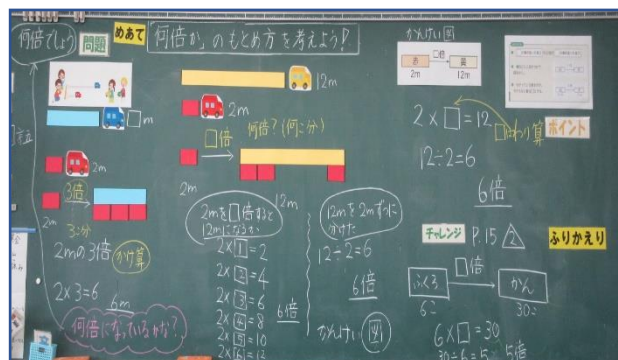 何倍でしょう
問題
めあて
「何倍か」のもとめ方を考えよう!
□m
2m
3倍
2m
3こ分
2mの3倍 かけ算
2×3=6
6m
何倍になっているかな?
12m
2m
□倍
何倍?(何こ分)
2m
12m
2mを□倍すると
12mになる
2×1=2
2×2=4
2×3=6
2×4=8
2×5=10
2×6=12
6倍
12mを2mずつに
分けた
12÷2=6
6倍
かんけい図
かんけい図
□倍
赤
黄
2m
12m
2×□=12
□はわり算
ポイント
12÷2=6
6倍
チャレンジ
P.15 2
ふりかえり
ふくろ
□倍
かん
6こ
30こ
6×□=30
30÷6=5 5倍